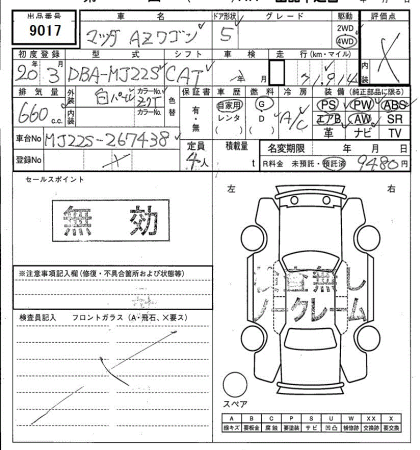 出品番号 車名 ドア形状 グレード 駆動 評価点
9017 マツダ AZワゴン 5 2WD 4WD X
初度登録 型式 シフト 車検 走行 (km・マイル)
20年 3月 DBA-MJ22S CAT 年 月 71,914
排気量 外装 カラーNo. 色替 保証書 車歴 燃料 冷房 装備 (純正部品に限る)
660 c.c. 白パール Z7T 有・無 自家用 レンタ G D A/C PS PW ABS
内装 カラーNo. エアB AW SR
( ) 革 ナビ TV
車台No MJ22S-267438 定員 4人 積載量 t 名変期限 年 月 日
登録No R料金 未預託・預託済 9480円
セールスポイント 左 右
無効
検査無し
ノークレーム
※注意事項記入欄 (修復・不具合箇所および状態等)
検査員記入 フロントガラス (A・飛石、X要ス)
スペア
A B C P S U W XX X
線キズ 要板金 腐蝕 要塗装 サビ 凹凸 補修跡 交換跡 要交換